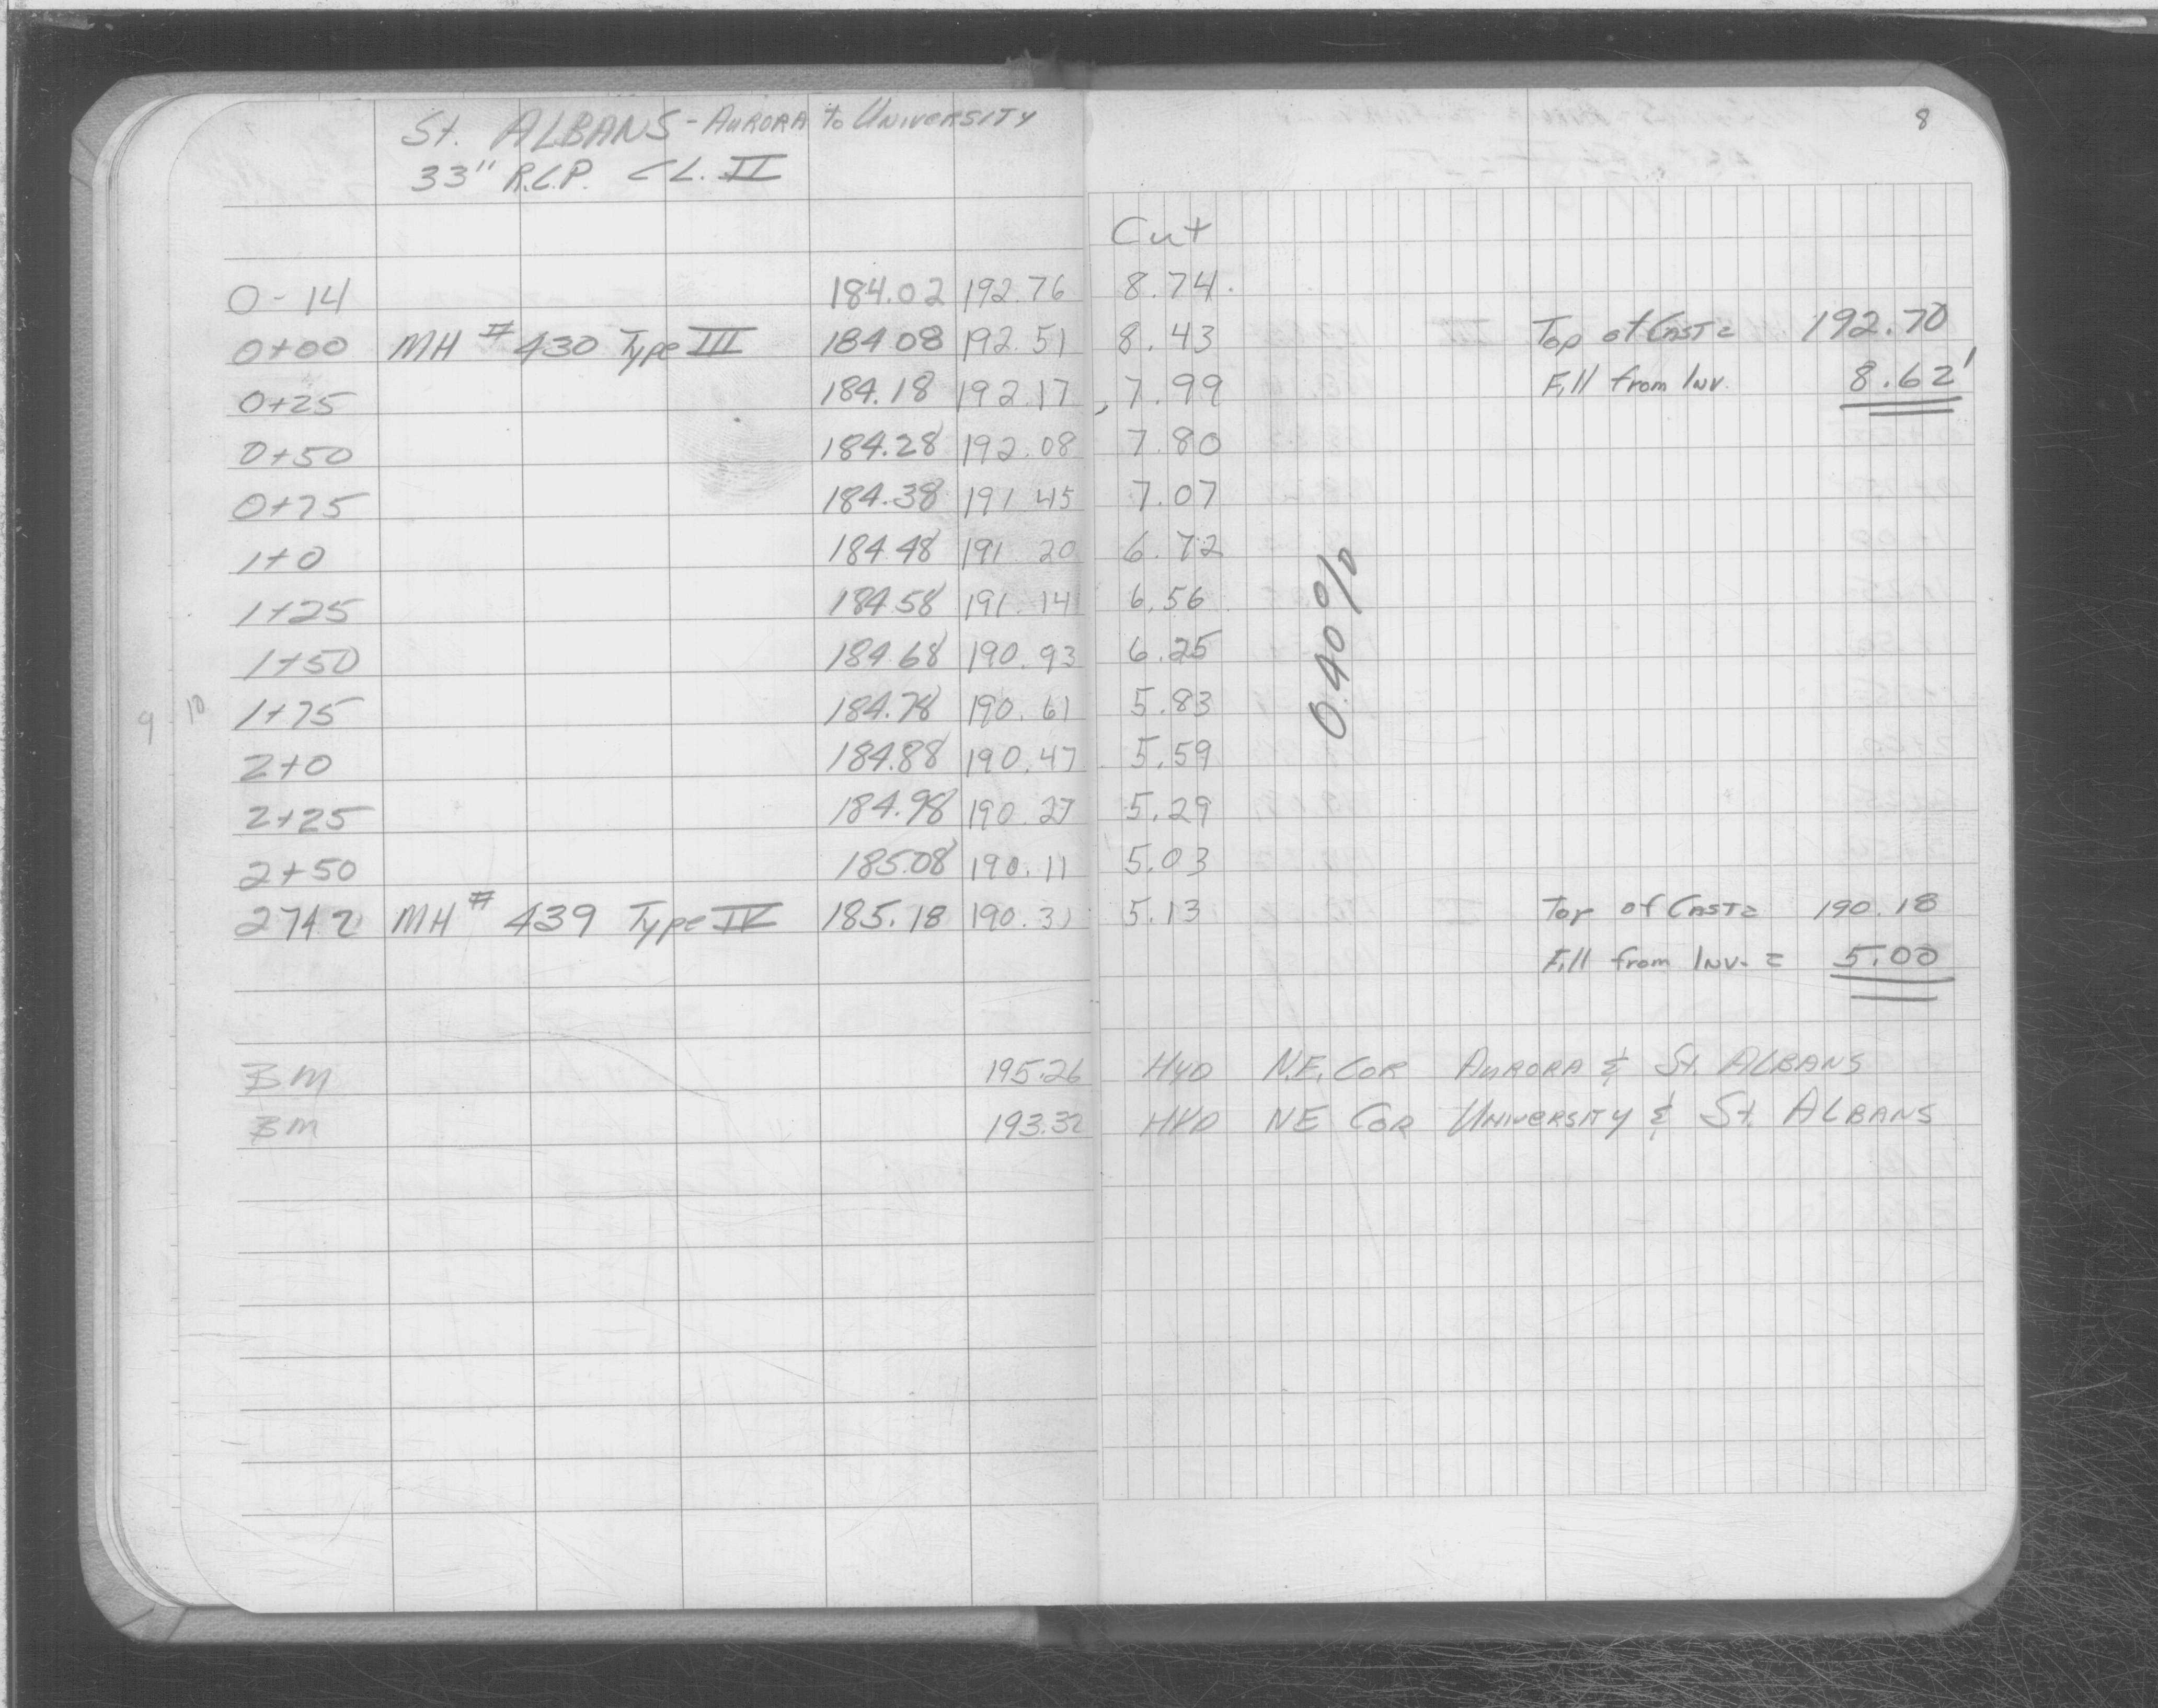 8
St. ALBANS - AURORA to UNIVERSITY
33" R.C.P. CL. II
Cut
0-14 184.02 192.76 8.74
0+00 MH # 430 Type III 184.08 192.51 8.43 Top of CAST = 192.70
0+25 184.18 192.17 7.99 Fill from INV. 8.62'
0+50 184.28 192.08 7.80
0+75 184.38 191.45 7.07
1+0 184.48 191.20 6.72
1+25 184.58 191.14 6.56
1+50 184.68 190.93 6.25
1+75 184.78 190.61 5.83
2+0 184.88 190.47 5.59
2+25 184.98 190.27 5.29
2+50 185.08 190.11 5.03
2742 MH # 439 Type IV 185.18 190.31 5.13 Top of CAST = 190.18
Fill from INV. = 5.00
0.40%
BM 195.26 HYD N.E. COR AURORA & St. ALBANS
BM 193.32 HYD NE COR UNIVERSITY & St. ALBANS
9 10